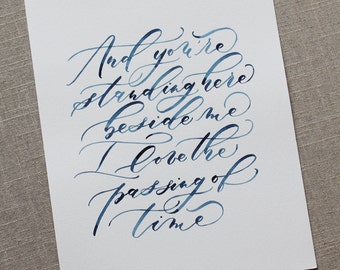 And you're
standing here
beside me
I love the
passing of
time